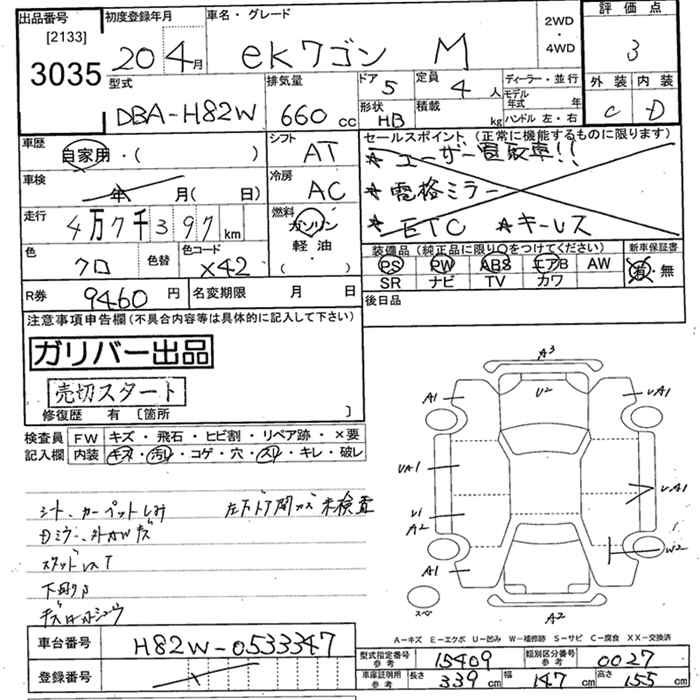 出品番号 初度登録年月 車名・グレード 2WD ・ 4WD 評価点
[2133]
3035 20 年 4月 eKワゴン M 3
型式 排気量 ドア 5 定員 4 人 ディーラー・並行 外装 内装
DBA-H82W 660 cc 形状 HB 積載 kg モデル年式 年 ハンドル 左・右 C D
車歴 自家用・( ) シフト AT セールスポイント (正常に機能するものに限ります)
★ユーザー買取車!!
車検 年 月( 日) 冷房 AC ★電格ミラー
走行 4万7千397km 燃料 ガソリン 軽油 ( ) ★ETC ★キーレス
色 クロ 色替 色コード X42 装備品 (純正品に限り○をつけてください) 新車保証書
PS PW ABS エアB AW 有・無
SR ナビ TV カワ
R券 9460 円 名変期限 月 日 後日品
注意事項申告欄(不具合内容等は具体的に記入して下さい)
ガリバー出品
売切スタート
修復歴 有 [箇所 ]
検査員 FW キズ・飛石・ヒビ割・リペア跡・×要
記入欄 内装 キズ・汚レ・コゲ・穴・スレ・キレ・破レ
シート、カーペットしみ 左下ドア開カズ未検査
スタッドレスT
下回りP
A3
A1 U2 UA1
UA1 UA1
U1
A2
A1 W2
スペ A2
A−キズ E−エクボ U−凹み W−補修跡 S−サビ C−腐食 XX−交換済
車台番号 H82W-0533347
型式指定番号 参考 15409 類別区分番号 参考 0027
登録番号
車庫証明用 参考 長さ 339 cm 幅 147 cm 高さ 155 cm